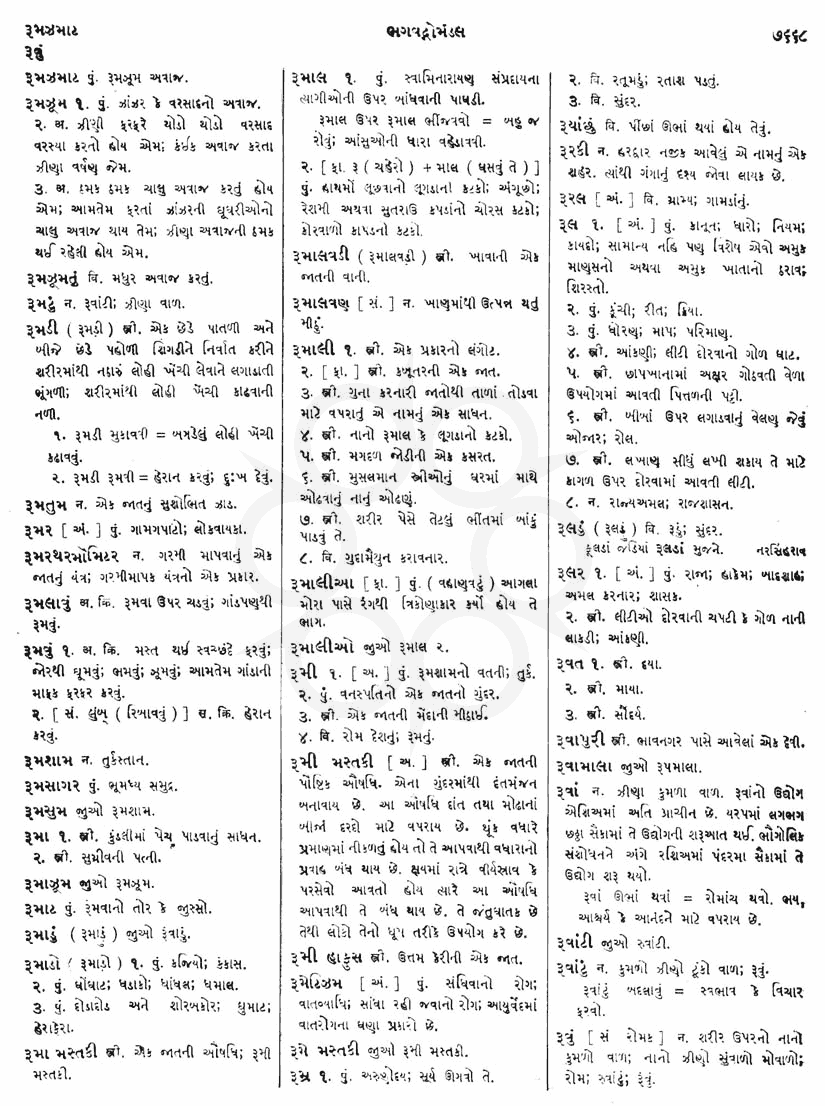 રૂમઝમાટ
રૂવું
ભગવદ્ગોમંડલ
૭૬૬૮
રૂમઝમાટ પું. રૂમઝૂમ અવાજ.
રૂમઝૂમ ૧. પું. ઝાંઝર કે વરસાદનો અવાજ.
૨. અ. ઝીણી ફરફરે થોડો થોડો વરસાદ
વરસ્યા કરતો હોય એમ; કંઈક અવાજ કરતા
ઝીણા વર્ષણ જેમ.
૩. અ. ઠમક ઠમક ચાલુ અવાજ કરતું હોય
એમ; આમતેમ ફરતાં ઝાંઝરની ઘૂઘરીઓનો
ચાલુ અવાજ થાય તેમ; ઝીણા અવાજની ઠમક
થઈ રહેલી હોય એમ.
રૂમઝૂમતું વિ. મધુર અવાજ કરતું.
રૂમટું ન. રૂવાંટી; ઝીણા વાળ.
રૂમડી ( રૂમડ઼ી ) સ્ત્રી. એક છેડે પાતળી અને
બીજે છેડે પહોળી શિંગડીને નિર્વાત કરીને
શરીરમાંથી નઠારું લોહી ખેંચી લેવાને લગાડાતી
ભૂંગળી; શરીરમાંથી લોહી ખેંચી કાઢવાની
નળી.
૧. રૂમડી મુકાવવી = બગડેલું લોહી ખેંચી
કઢાવવું.
૨. રૂમડી રમવી = હેરાન કરવું; દુઃખ દેવું.
રૂમતુમ ન. એક જાતનું સુશોભિત ઝાડ.
રૂમર [ અં. ] પું. ગામગપાટો; લોકવાયકા.
રૂમરથરમૉમિટર ન. ગરમી માપવાનું એક
જાતનું યંત્ર; ગરમીમાપક યંત્રનો એક પ્રકાર.
રૂમલાવું અ. ક્રિ. રૂમવા ઉપર ચડવું; ગાંડપણુથી
રૂમવું.
રૂમવું ૧. અ. ક્રિ. મસ્ત થઈ સ્વચ્છંદે ફરવું;
જોરથી ઘૂમવું; ભમવું; ઝૂમવું; આમતેમ ગાંડાની
માફક ફરફર કરવું.
૨. [ સં. લુંબ્ ( રિબાવવું ) ] સ. ક્રિ. હેરાન
કરવું.
રૂમશામ ન. તુર્કસ્તાન.
રૂમસાગર પું. ભૂમધ્ય સમુદ્ર.
રૂમસુમ જુઓ રૂમશામ.
રૂમા ૧. સ્ત્રી. કુંડલીમાં પેચ પાડવાનું સાધન.
૨. સ્ત્રી. સુગ્રીવની પત્ની.
રૂમાઝૂમ જુઓ રૂમઝૂમ.
રૂમાટ પું. રૂંમવાનો તોર કે જુસ્સો.
રૂમાડું ( રૂમાડ઼ું ) જુઓ રૂંવાડું.
રૂમાડો ( રૂમાડ઼ો ) ૧. પું. કજિયો; કંકાસ.
૨. પું. ઘોંઘાટ; ધડાકો; ધાંધલ; ધમાલ.
૩. પું. દોડાદોડ અને શોરબકોર; ધુમાટ;
હેરાફેરા.
રૂમા મસ્તકી સ્ત્રી. એક જાતની ઔષધિ; રૂમી
મસ્તકી.
રૂમાલ ૧. પું. સ્વામિનારાયણ સંપ્રદાયના
ત્યાગીઓની ઉપર બાંધવાની પાઘડી.
રૂમાલ ઉપર રૂમાલ ભીંજવવો = બહુ જ
રોવું; આંસુઓની ધારા વહેડાવવી.
૨. [ ફા. રૂ ( ચહેરો ) + માલ ( ઘસવું તે ) ]
પું. હાથમોં લૂછવાનો લૂગડાનો કટકો; અંગૂછો;
રેશમી અથવા સુતરાઉ કપડાંનો ચોરસ કટકો;
કોરવાળો કાપડનો કટકો.
રૂમાલવડી ( રૂમાલવડ઼ી ) સ્ત્રી. ખાવાની એક
જાતની વાની.
રૂમાલવણ [ સં. ] ન. ખાણમાંથી ઉત્પન્ન થતું
મીઠું.
રૂમાલી ૧. સ્ત્રી. એક પ્રકારનો લંગોટ.
૨. [ ફા. ] સ્ત્રી. કબૂતરની એક જાત.
૩. સ્ત્રી. ગુના કરનારી જાતોથી તાળાં તોડવા
માટે વપરાતું એ નામનું એક સાધન.
૪. સ્ત્રી. નાનો રૂમાલ કે લૂગડાનો કટકો.
૫. સ્ત્રી. મગદળ જોડીની એક કસરત.
૬. સ્ત્રી. મુસલમાન સ્ત્રીઓનું ઘરમાં માથે
ઓઢવાનું નાનું ઓઢણું.
૭. સ્ત્રી. શરીર પેસે તેટલું ભીંતમાં બાકું
પાડવું તે.
૮. વિ. ગુદામૈથુન કરાવનાર.
રૂમાલીઆ [ ફા. ] પું. ( વહાણવટું ) આગલા
મોરા પાસે રંગથી ત્રિકોણાકાર કર્યો હોય તે
ભાગ.
રૂમાલીઓ જુઓ રૂમાલ ૨.
રૂમી ૧. [ અ. ] પું. રૂમશામનો વતની; તુર્ક.
૨. પું. વનસ્પતિનો એક જાતનો ગુંદર.
૩. સ્ત્રી. એક જાતની મેંદાની મીઠાઈ.
૪. વિ. રોમ દેશનું; રૂમનું.
રૂમી મસ્તકી [ અ. ] સ્ત્રી. એક જાતની
પૌષ્ટિક ઔષધિ. એના ગુંદરમાંથી દંતમંજન
બનાવાય છે. આ ઔષધિ દાંત તથા મોઢાનાં
બીજાં દરદો માટે વપરાય છે. થૂંક વધારે
પ્રમાણમાં નીકળતું હોય તો તે આપવાથી વધારાનો
પ્રવાહ બંધ થાય છે. ક્ષયમાં રાત્રે વીર્યસ્રાવ કે
પરસેવો આવતો હોય ત્યારે આ ઔષધિ
આપવાથી તે બંધ થાય છે. તે જંતુઘાતક છે
તેથી લોકો તેનો ધૂપ તરીકે ઉપયોગ કરે છે.
રૂમી હાફુસ સ્ત્રી. ઉત્તમ કેરીની એક જાત.
રૂમેટિઝમ [ અં. ] પું. સંધિવાનો રોગ;
વાતવ્યાધિ; સાંધા રહી જવાનો રોગ; આયુર્વેદમાં
વાતરોગના ઘણા પ્રકારો છે.
રૂમે મસ્તકી જુઓ રૂમી મસ્તકી.
રૂમ્ર ૧. પું. અરુણોદય; સૂર્ય ઊગવો તે.
૨. વિ. રતૂમડું; રતાશ પડતું.
૩. વિ. સુંદર.
રૂયાંછું વિ. પીંછાં ઊભાં થયાં હોય તેવું.
રૂરકી ન. હરદ્વાર નજીક આવેલું એ નામનું એક
શહેર. ત્યાંથી ગંગાનું દૃશ્ય જોવા લાયક છે.
રૂરલ [ અં. ] વિ. ગ્રામ્ય; ગામડાંનું.
રૂલ ૧. [ અં. ] પું. કાનૂન; ધારો; નિયમ;
કાયદો; સામાન્ય નહિ પણ વિશેષ એવો અમુક
માણસનો અથવા અમુક ખાતાનો ઠરાવ;
શિરસ્તો.
૨. પું. કૂંચી; રીત; ક્રિયા.
૩. પું. ધોરણ; માપ; પરિમાણ.
૪. સ્ત્રી. આંકણી; લીટી દોરવાનો ગોળ ઘાટ.
૫. સ્ત્રી. છાપખાનામાં અક્ષર ગોઠવતી વેળા
ઉપયોગમાં આવતી પિત્તળની પટ્ટી.
૬. સ્ત્રી. બીબાં ઉપર લગાડવાનું વેલણ જેવું
ઓજાર; રોલ.
૭. સ્ત્રી. લખાણ સીધું લખી શકાય તે માટે
કાગળ ઉપર દોરવામાં આવતી લીટી.
૮. ન. રાજ્યઅમલ; રાજશાસન.
રૂલડું ( રૂલડ઼ું ) વિ. રૂડું; સુંદર.
ફૂલડાં જડિયાં રૂલડાં મુજને. નરસિંહરાવ
રૂલર ૧. [ અં. ] પું. રાજા; હાકેમ; બાદશાહ;
અમલ કરનાર; શાસક.
૨. સ્ત્રી. લીટીઓ દોરવાની ચપટી કે ગોળ નાની
લાકડી; આંકણી.
રૂવત ૧. સ્ત્રી. દયા.
૨. સ્ત્રી. માયા.
૩. સ્ત્રી. સૌંદર્ય.
રૂવાપુરી સ્ત્રી. ભાવનગર પાસે આવેલાં એક દેવી.
રૂવામાલા જુઓ રૂપમાલા.
રૂવાં ન. ઝીણા કુમળા વાળ. રૂવાંનો ઉદ્યોગ
એશિઅમાં અતિ પ્રાચીન છે. યરપમાં લગભગ
છઠ્ઠા સૈકામાં તે ઉદ્યોગની શરૂઆત થઈ. ભૌગોલિક
સંશોધનને અંગે રશિઅમાં પંદરમા સૈકામાં તે
ઉદ્યોગ શરૂ થયો.
રૂવાં ઊભાં થવાં = રોમાંચ થવો. ભય,
આશ્ચર્ય કે આનંદને માટે વપરાય છે.
રૂવાંટી જુઓ રુવાંટી.
રૂવાંટું ન. કુમળો ઝીણો ટૂંકો વાળ; રૂવું.
રૂવાંટું બદલાવું = સ્વભાવ કે વિચાર
ફરવો.
રૂવું [ સં રોમક ] ન. શરીર ઉપરનો નાનો
કુમળો વાળ; નાનો ઝીણો સુંવાળો મોવાળો;
રોમ; રુવાંટું; રૂંવું.